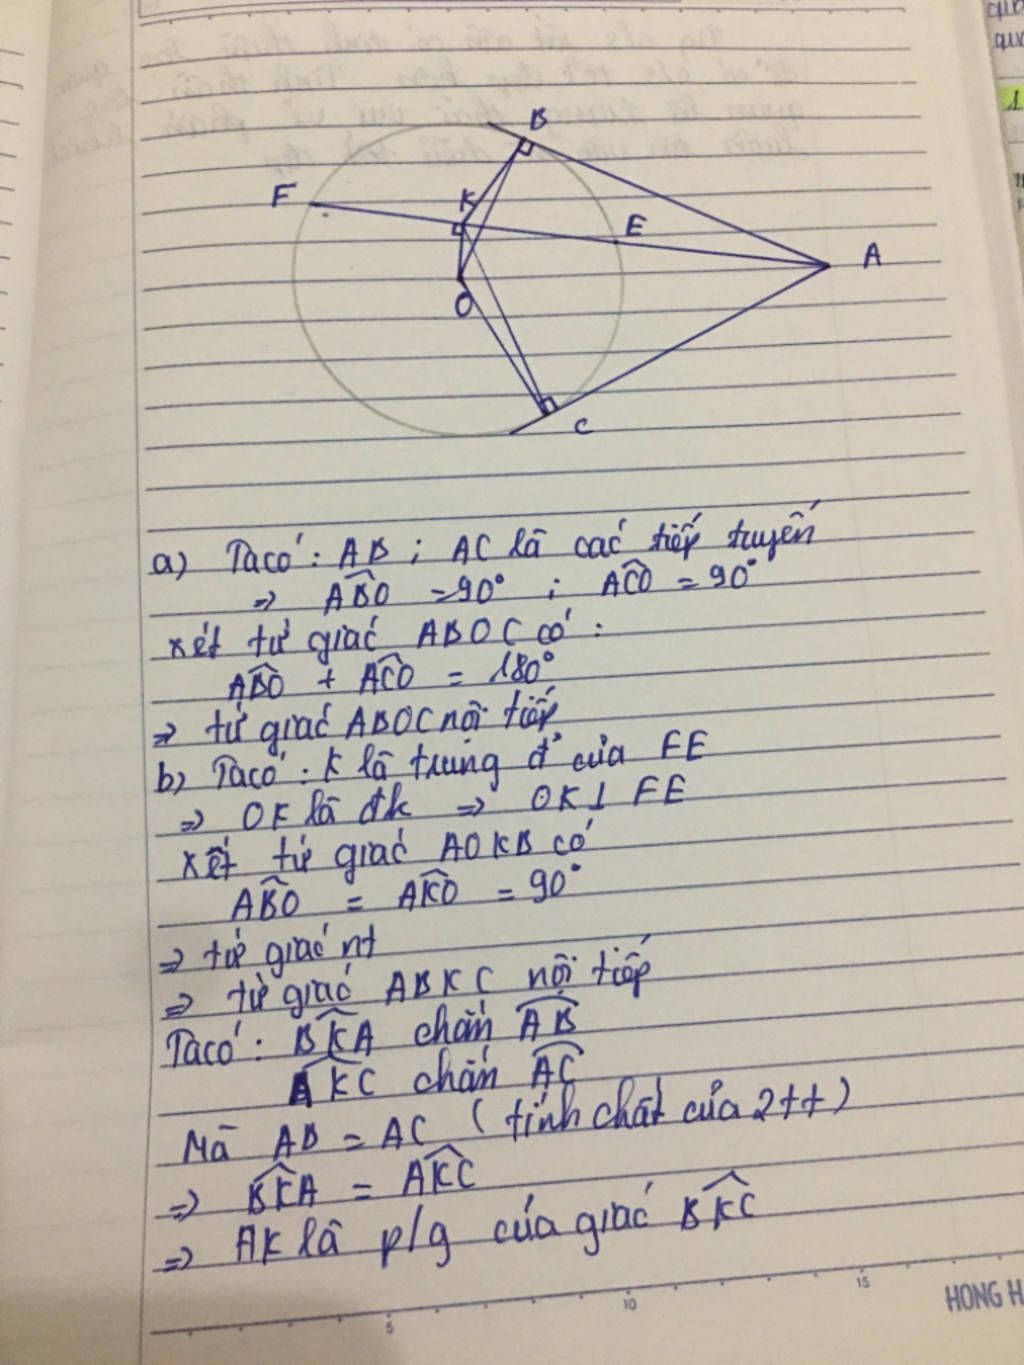 B
F
K
E
A
O
C
a) Ta có : AB ; AC là các tiếp tuyến
=> ABO = 90° ; ACO = 90°
xét tứ giác ABOC có :
ABO + ACO = 180°
=> tứ giác ABOC nội tiếp
b) Ta có : K là trung đ' của FE
=> OK là đk => OK ⊥ FE
xét tứ giác AOKB có
ABO = AKO = 90°
=> tứ giác nt
=> tứ giác ABKC nội tiếp
Ta có : BKA chắn AB
AKC chắn AC
Mà AB = AC ( tính chất của 2tt )
=> BKA = AKC
=> AK là p/g của giác BKC
5 10 15
HONG H
1